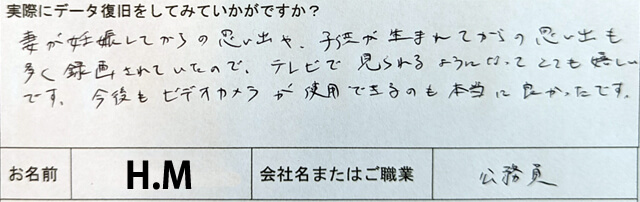 実際にデータ復旧をしてみていかがですか？
妻が妊娠してからの思い出や、子供が生まれてからの思い出も
多く録画されていたので、テレビで見られるようになってとても嬉しい
です。今後もビデオカメラが使用できるのも本当に良かったです。
お名前 H.M 会社名またはご職業 公務員